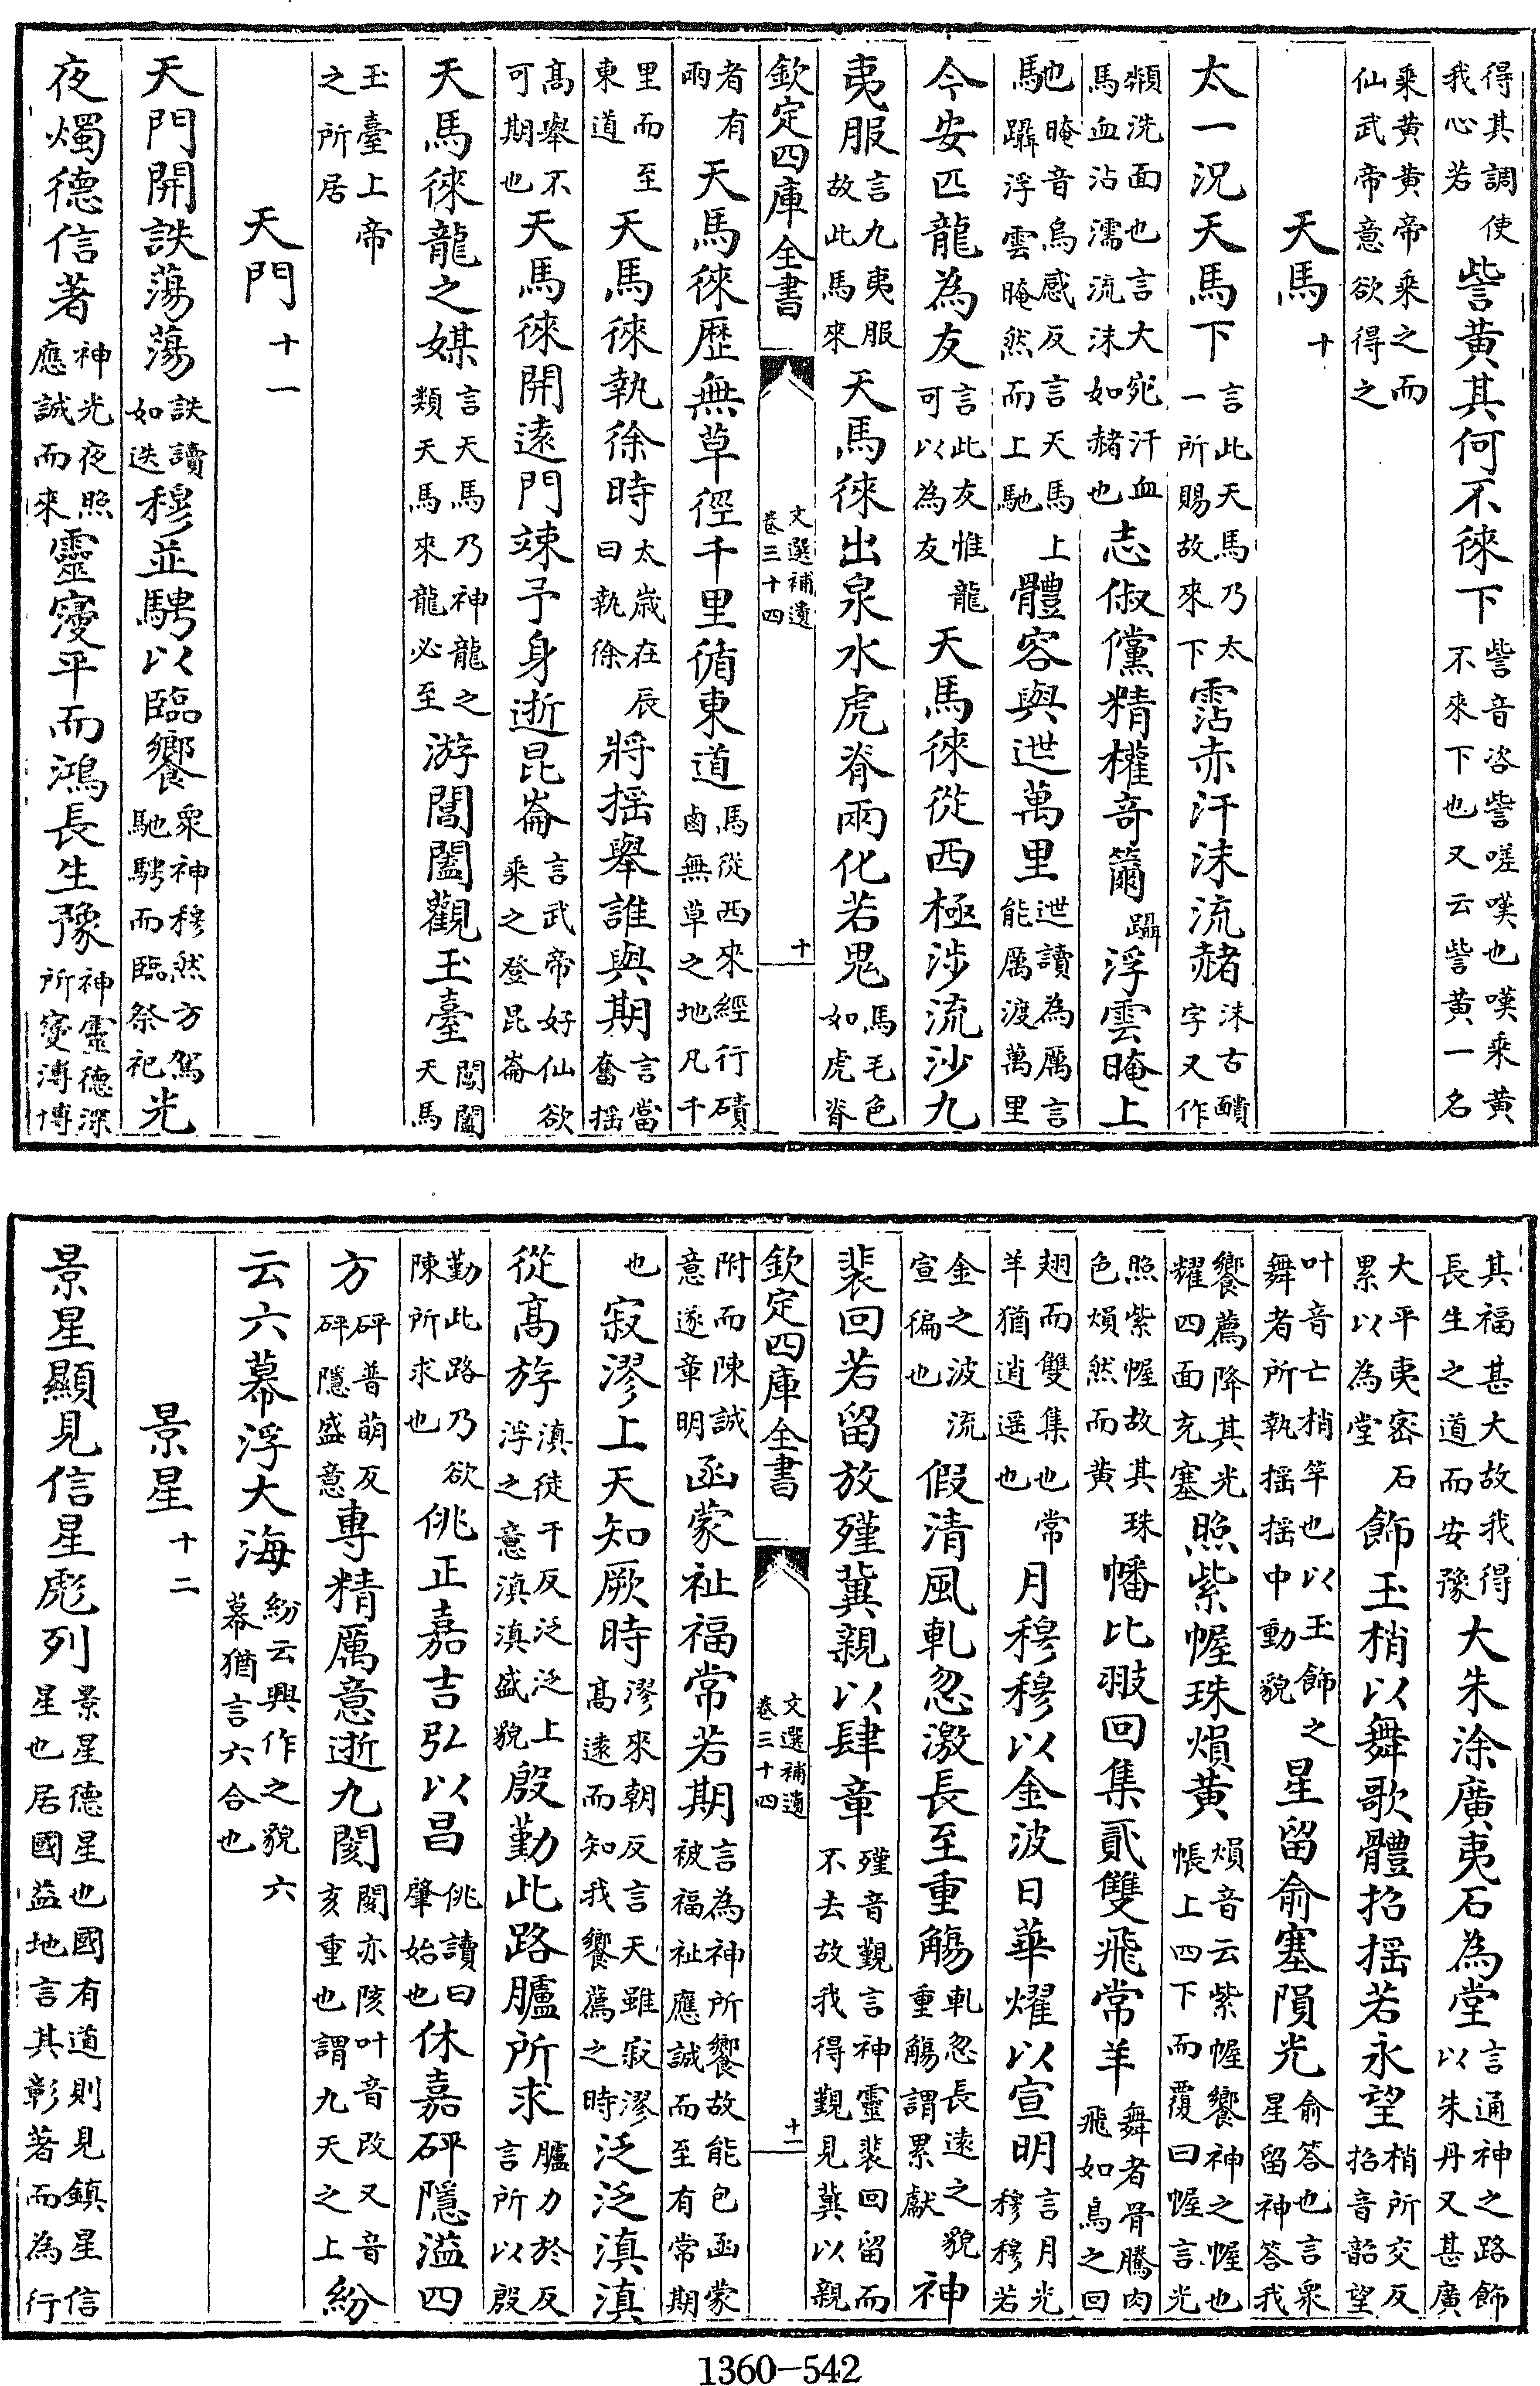 得其調使我心若訾黃其何不徠下訾音咨訾嗟嘆也嘆乗黃不來下也又云訾黃一名
乗黃黃帝乗之而仙武帝意欲得之
天馬十
太一況天馬下言此天馬乃太一所賜故來下霑赤汗沬流赭沬古靧字又作
頮洗面也言大宛汗血馬血沾濡流沬如赭也志俶儻精權竒籋躡浮雲晻上
也晻音烏感反言天馬上馳躡浮雲晻然而上馳體容與迣萬里迣讀為厲言能厲渡萬里
今安匹龍為友言此友惟龍可以為友天馬徠從西極涉流沙九
夷服言九夷服故此馬來天馬徠出泉水虎脊兩化若鬼馬毛色如虎脊
欽定四庫全書 文選補遺卷三十四 十
者有兩天馬徠歴無草徑千里循東道馬從西來經行磧鹵無草之地凡千
里而至東道天馬徠執徐時太歳在辰曰執徐將揺舉誰與期言當奮揺
髙舉不可期也天馬徠開逺門竦予身逝昆崙言武帝好仙欲乗之登昆崙
天馬徠龍之媒言天馬乃神龍之類天馬來龍必至游閶闔觀玉臺閶闔天馬
玉臺上帝之所居
天門十一
天門開詄蕩蕩詄讀如迭穆並騁以臨饗衆神穆然方駕馳騁而臨祭祀光
夜燭德信著神光夜照應誠而來靈寖平而鴻長生豫神靈德深所寖溥博
其福甚大故我得長生之道而安豫大朱涂廣夷石為堂言通神之路飾以朱丹又甚廣
大平夷宻石累以為堂飾玉梢以舞歌體招揺若永望梢所交反招音韶望
叶音亡梢竿也以玉飾之舞者所執揺揺中動貌星留俞塞隕光俞答也言衆星留神答我
饗薦降其光耀四面充塞照紫幄珠熉黃熉音云紫幄饗神之幄也帳上四下而覆曰幄言光
照紫幄故其珠色熉然而黃幡比翄回集貳雙飛常羊舞者骨騰肉飛如鳥之回
翅而雙集也常羊猶逍遥也月穆穆以金波日華燿以宣明言月光穆穆若
金之波流宣徧也假清風軋忽激長至重觴軋忽長逺之貌重觴謂累獻神
裴回若留放殣冀親以肆章殣音覲言神靈裴回留而不去故我得覲見冀以親
欽定四庫全書 文選補遺卷三十四 十一
附而陳誠意遂章明函蒙祉福常若期言為神所饗故能包函蒙被福祉應誠而至有常期
也寂漻上天知厥時漻來朝反言天雖寂漻髙逺而知我饗薦之時泛泛滇滇
從髙斿滇徒干反泛泛上浮之意滇滇盛貌殷勤此路臚所求臚力於反言所以殷
勤此路乃欲陳所求也佻正嘉吉弘以昌佻讀曰肇始也休嘉砰隱溢四
方砰普萌反砰隱盛意專精厲意逝九閡閡亦陔叶音改又音亥重也謂九天之上紛
云六幕浮大海紛云興作之貌六幕猶言六合也
景星十二
景星顯見信星彪列景星德星也國有道則見鎮星信星也居國益地言其彰著而為行
1360-542